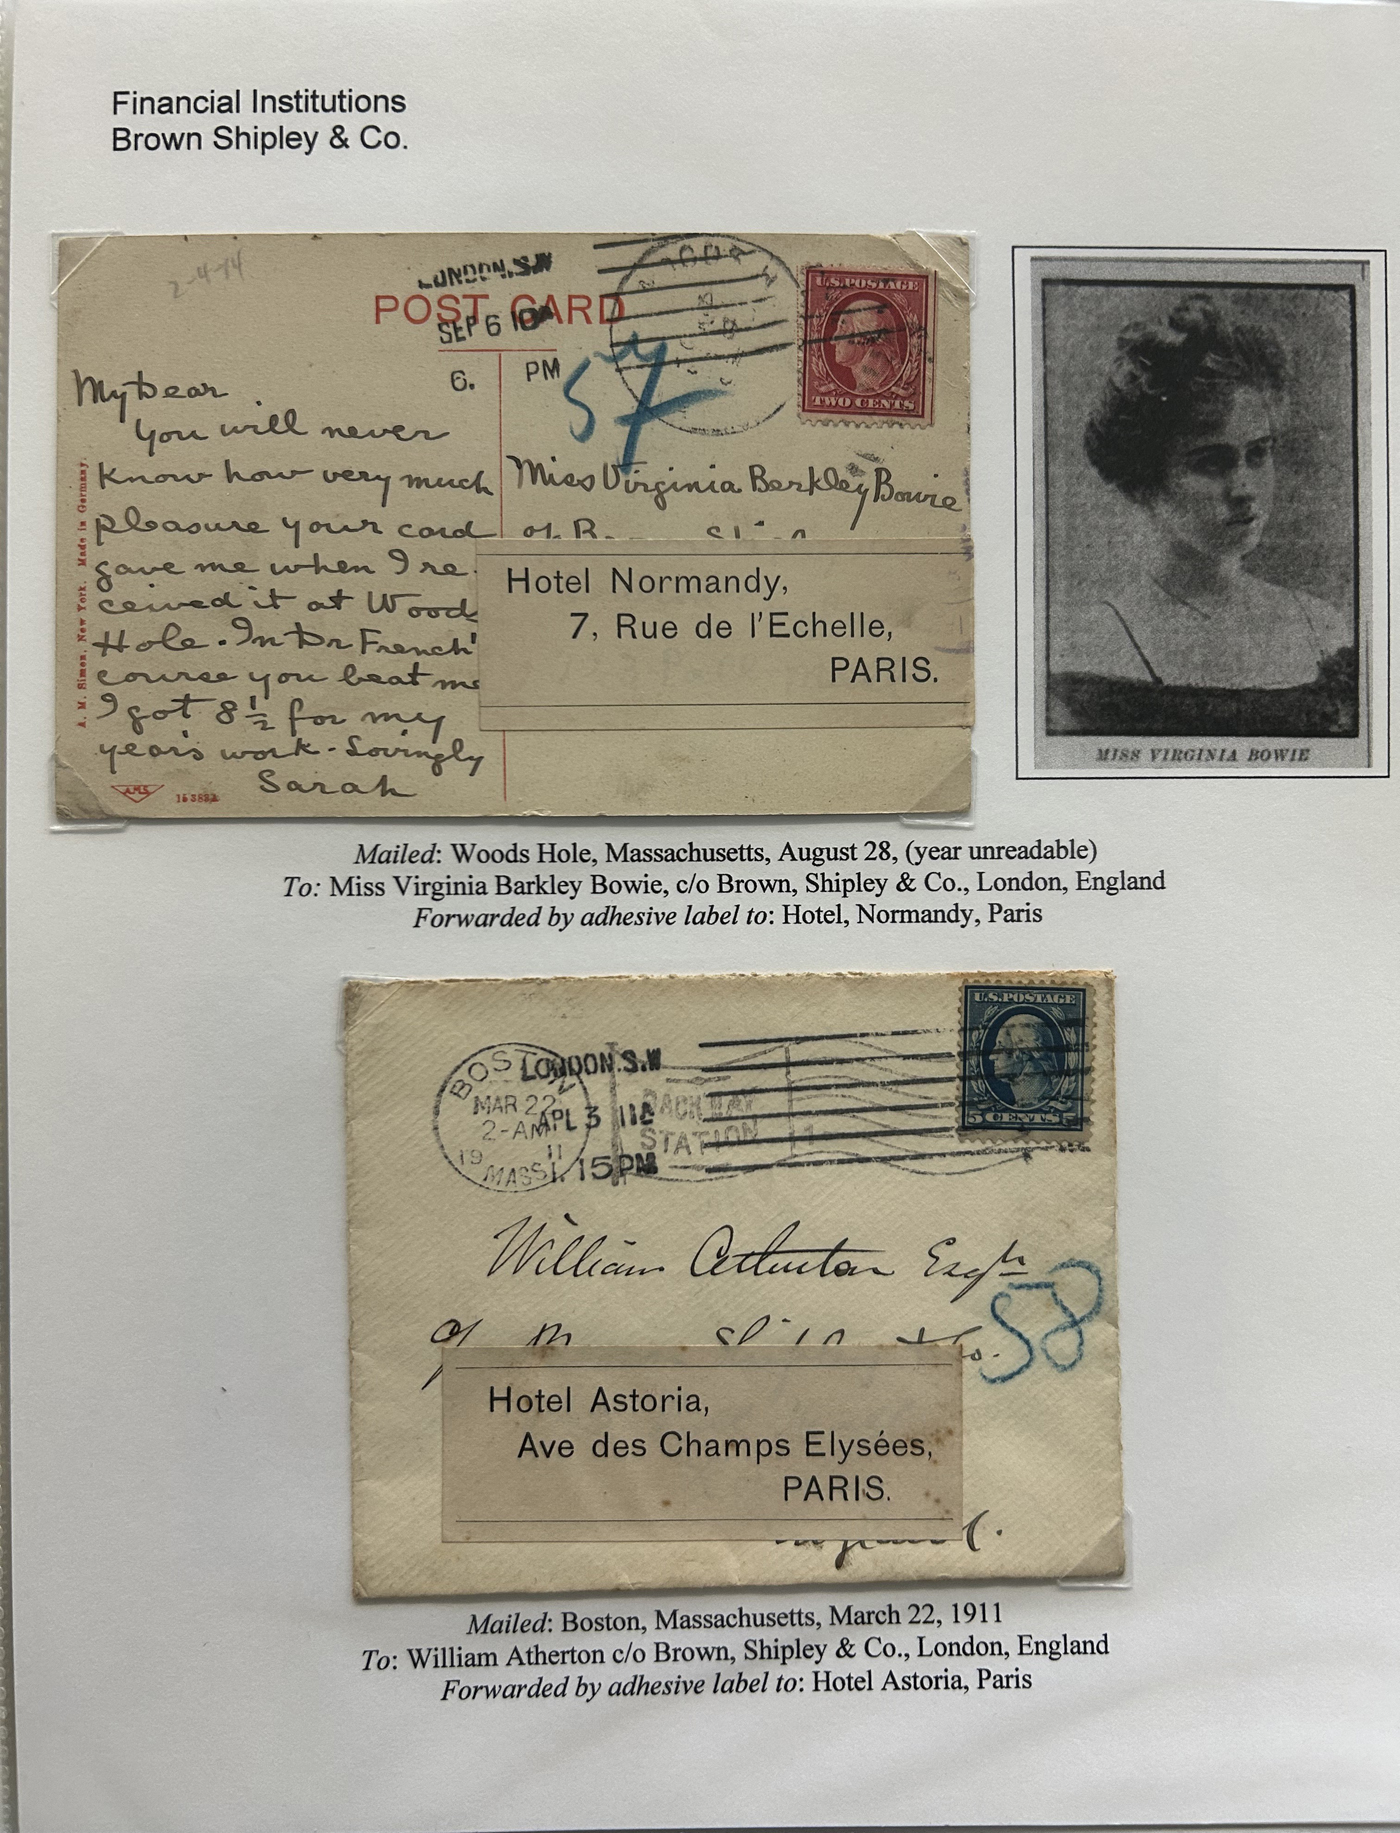 Financial Institutions
Brown Shipley & Co.
2-4-14
LONDON.S.W
POST CARD
SEP 6 10
6. PM
57
U.S. POSTAGE
TWO CENTS
My Dear
You will never
know how very much
pleasure your card
gave me when I re-
ceived it at Woods
Hole. In Dr French'
course you beat me
I got 8 1/2 for my
year's work - Lovingly
Sarah
A. M. Simon, New York. Made in Germany.
A.M.S.
Miss Virginia Berkley Bowie
Hotel Normandy,
7, Rue de l'Echelle,
PARIS.
MISS VIRGINIA BOWIE
Mailed: Woods Hole, Massachusetts, August 28, (year unreadable)
To: Miss Virginia Barkley Bowie, c/o Brown, Shipley & Co., London, England
Forwarded by adhesive label to: Hotel, Normandy, Paris
BOSTON
MAR 22
2-AM
19 11
MASS.
LONDON.S.W
APL 3 11
1.15PM
BACK BAY
STATION
1
U.S. POSTAGE
5 CENTS 5
William Atherton Esqr
58
Hotel Astoria,
Ave des Champs Elysées,
PARIS.
Mailed: Boston, Massachusetts, March 22, 1911
To: William Atherton c/o Brown, Shipley & Co., London, England
Forwarded by adhesive label to: Hotel Astoria, Paris